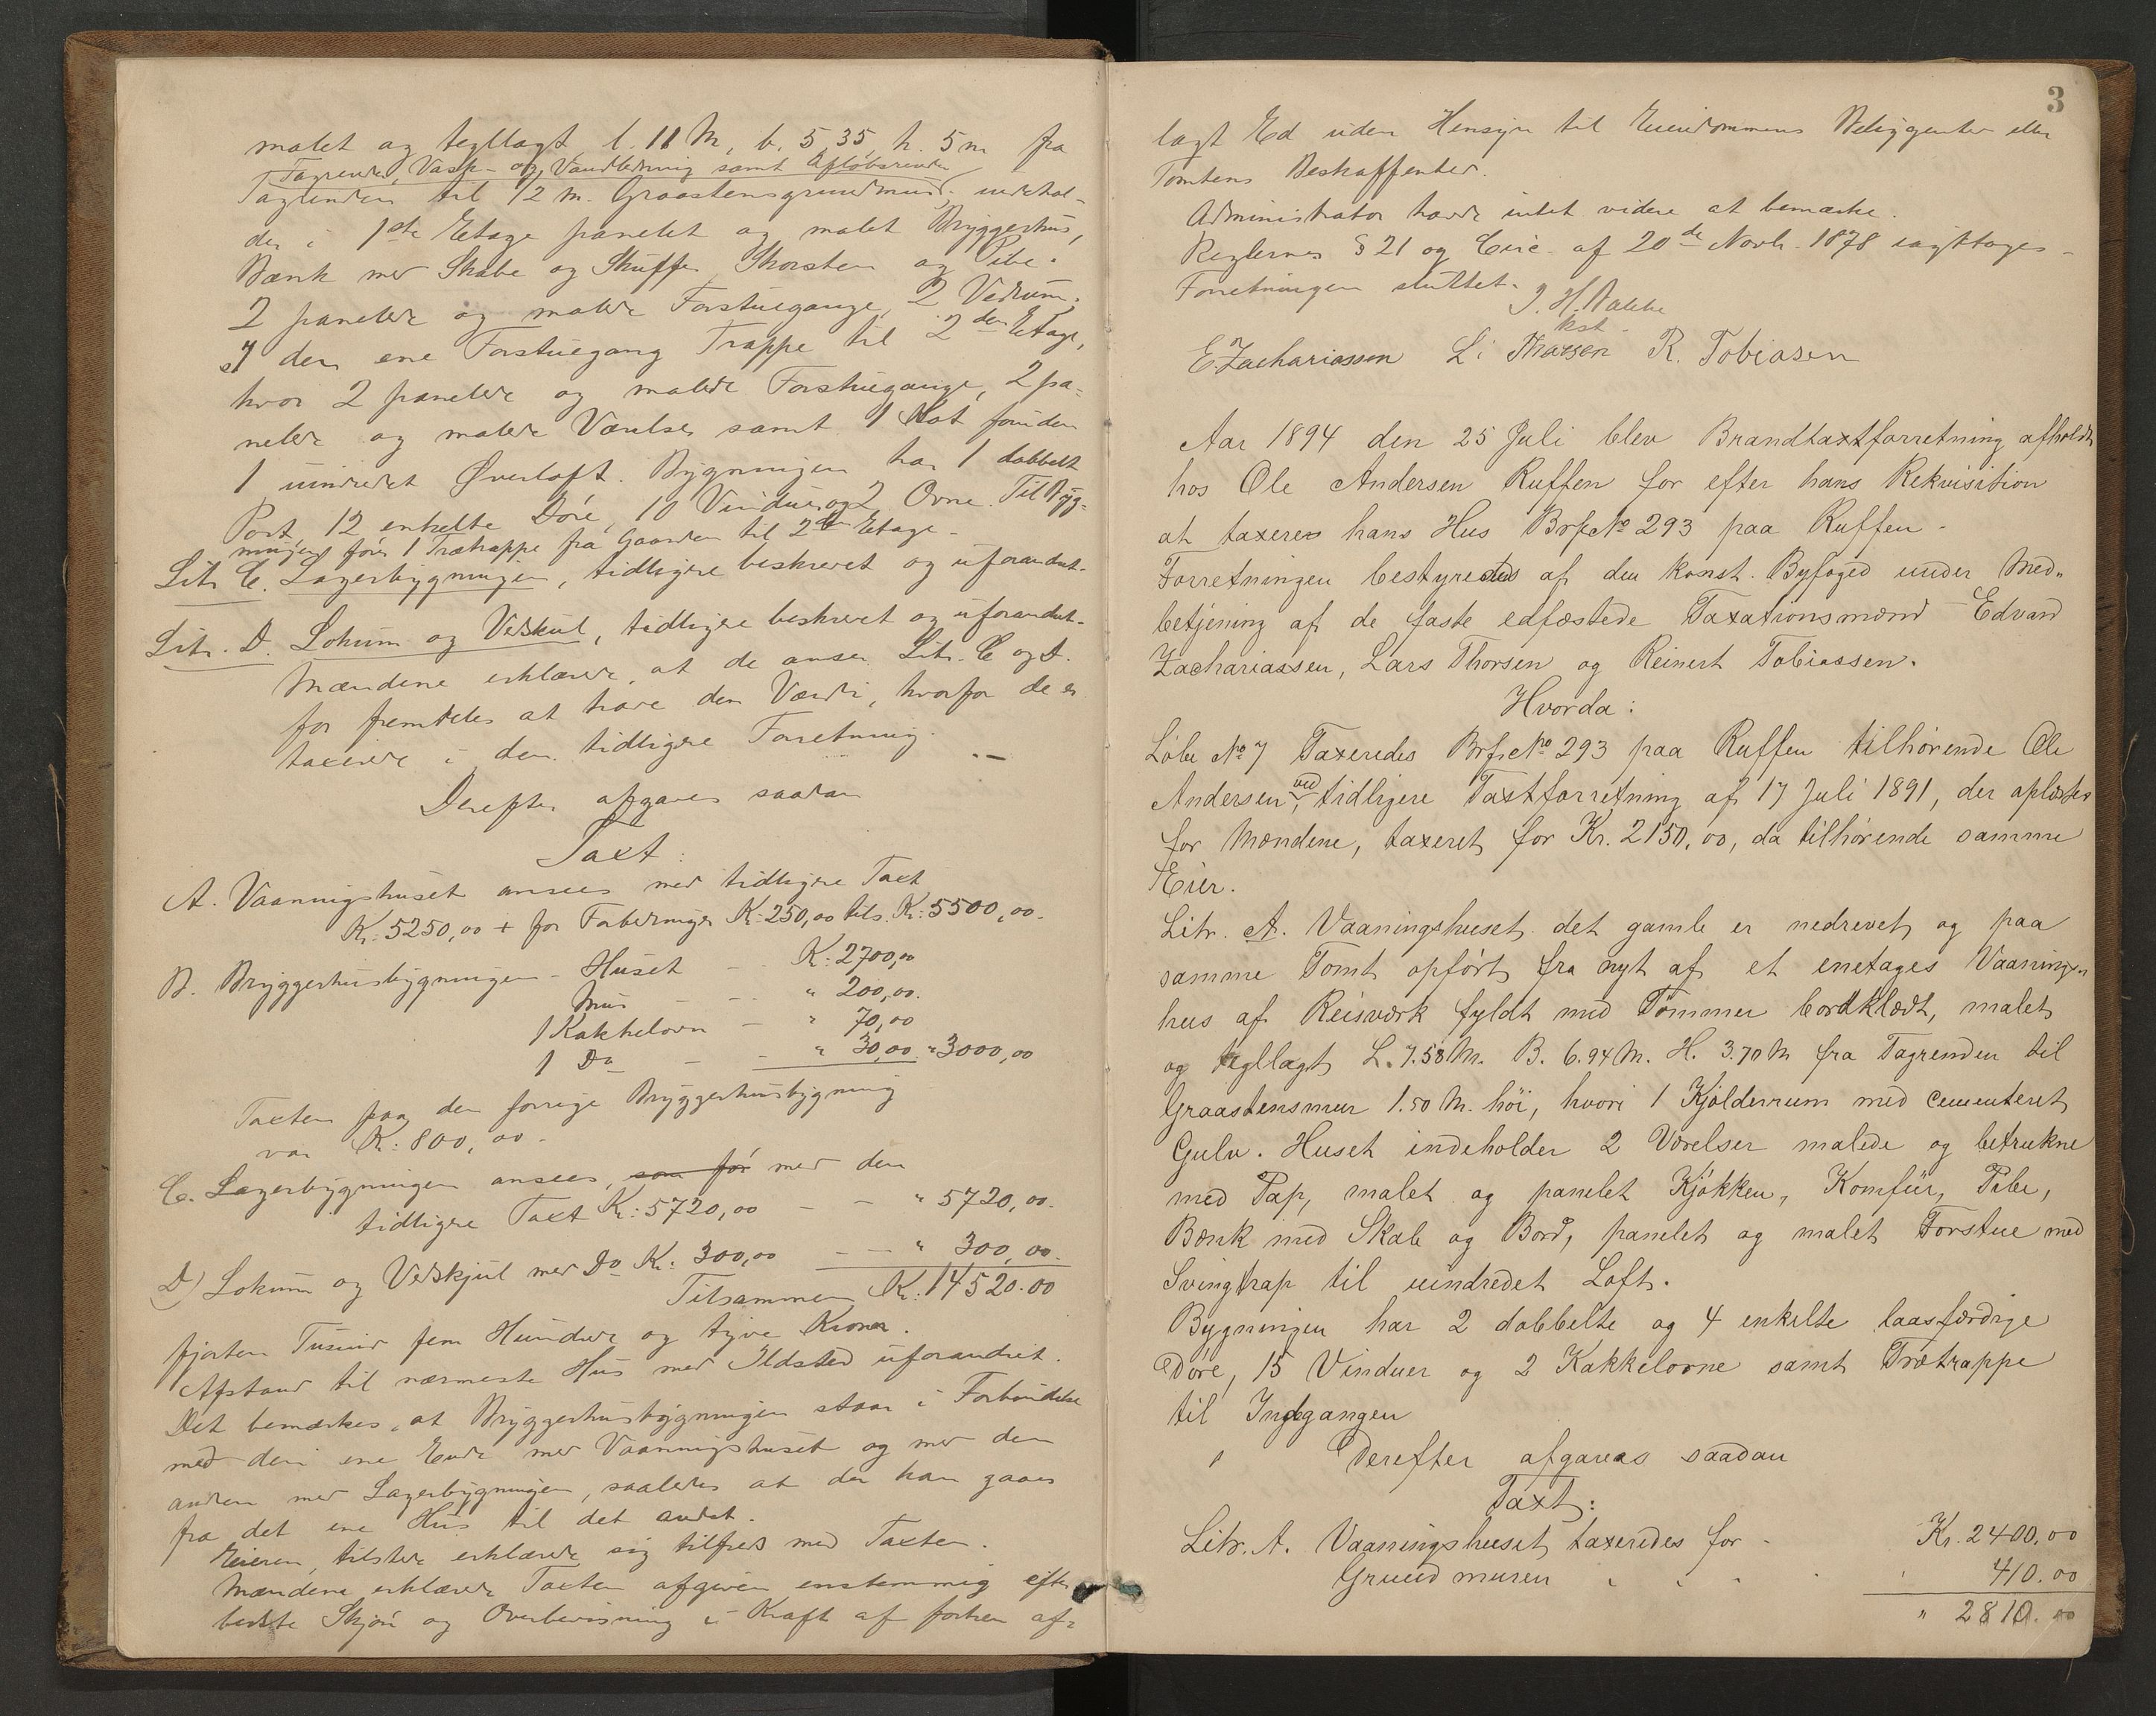 malet og tegllagt, l. 11 M, b. 5,35, h. 5 m fra
Tagrender, Vask- og Vandledning samt Afløbsrender
Tagrenden til 1/2 m. Graastensgrundmur, indehol-
der i 1ste Etage panelet og malet Bryggerhus,
Bænk med Skabe og Skuffer, Skorsten og Pibe.
2 panelede og malede Forstuegange, 2 Vedrum.
I den ene Forstuegang Trappe til 2den Etage,
hvor 2 panelede og malede Forstuegange, 2 pa-
nelede og malede Værelser samt 1 Kot foruden
1 uindredet Øverloft. Bygningen har 1 dobbelt
Port, 12 enkelte Døre, 10 Vinduer og 2 Ovne. Til Byg-
ningen fører 1 Trætrappe fra Gaarden til 2den Etage.
Litr. C. Lagerbygningen, tidligere beskrevet og uforandret.
Litr. D. Lokum og Vedskul, tidligere beskrevet og uforandret.
Mændene erklærede, at de anser Litr. C og D.
for fremdeles at have den Værdi, hvorfor de er
taxerede i den tidligere Forretning. —
Derefter afgaves saadan
Taxt:
A. Vaaningshuset ansees med tidligere Taxt
Kr. 5250,00 + for Forbedringer Kr. 250,00 tils. Kr. 5500,00.
B. Bryggerhusbygningen - Huset - Kr. 2700,00
Mur - - " 200,00.
1 Kakkelovn - " 70,00
1 Do - - " 30,00 " 3000,00
Taxten paa den forrige Bryggerhusbygning
var Kr. 800,00 -
C. Lagerbygningen ansees, som før med den
tidligere Taxt Kr. 5720,00 - - " 5720,00.
D) Lokum og Vedskjul med Do Kr. 300,00 - - " 300,00.
Tilsammen Kr. 14520.00
fjorten Tusind fem Hundrede og tyve Kroner.
Afstand til nærmeste Hus med Ildsted uforandret.
Det bemærkes, at Bryggerhusbygningen staar i Forbindelse
med den ene Ende med Vaaningshuset og med den
anden med Lagerbygningen, saaledes at der kan gaaes
fra det ene Hus til det andet.
Eieren tilstede erklærede sig tilfreds med Taxten.
Mændene erklærede Taxten afgiven enstemmig efter
bedste Skjøn og Overbevisning i Kraft af forhen af-
3
lagt Ed uden Hensyn til Eiendommens Beliggenhed eller
Tomtens Beskaffenhed.
Administrator havde intet videre at bemærke.
Reglernes § 21 og Circ. af 20de Novb. 1878 iagttages -
Forretningen sluttet.
kst.
E. Zachariassen L. Thorsen R. Tobiasen
Aar 1894 den 25 Juli blev Brandtaxtforretning afholdt
hos Ole Andersen Ruffen for efter hans Rekvisition
at taxeres hans Hus Brf. No 293 paa Ruffen -
Forretningen bestyredes af den konst. Byfoged under Med-
betjening af de faste edfæstede Taxationsmænd Edvard
Zachariassen, Lars Thorsen og Reinert Tobiassen.
Hvorda:
Løbe No 7 Taxeredes Brf. No 293 paa Ruffen tilhørende Ole
Andersen, ved tidligere Taxtforretning af 17 Juli 1891, der oplæstes
for Mændene, taxeret for Kr. 2150,00, da tilhørende samme
Eier.
Litr. A. Vaaningshuset det gamle er nedrevet og paa
samme Tomt opført fra nyt af et enetages Vaanings-
hus af Reisværk fyldt med Tømmer bordklædt, malet
og tegllagt L. 7.58 M. B. 6.94 M. H. 3.70 M fra Tagrenden til
Graastensmur 1.50 M. høi, hvori 1 Kjælderrum med cementeret
Gulv. Huset indeholder 2 Værelser malede og betrukne
med Pap, malet og panelet Kjøkken, Komfür, Pibe,
Bænk med Skab og Bord, panelet og malet Forstue med
Svingtrap til uindredet Loft.
Bygningen har 2 dobbelte og 4 enkelte laasfærdige
Døre, 15 Vinduer og 2 Kakkelovne samt Trætrappe
til Indgangen
Derefter afgaves saadan
Taxt:
Litr. A. Vaaningshuset taxeredes for - Kr. 2400,00
Grundmuren " " " 410.00
" 2810.00